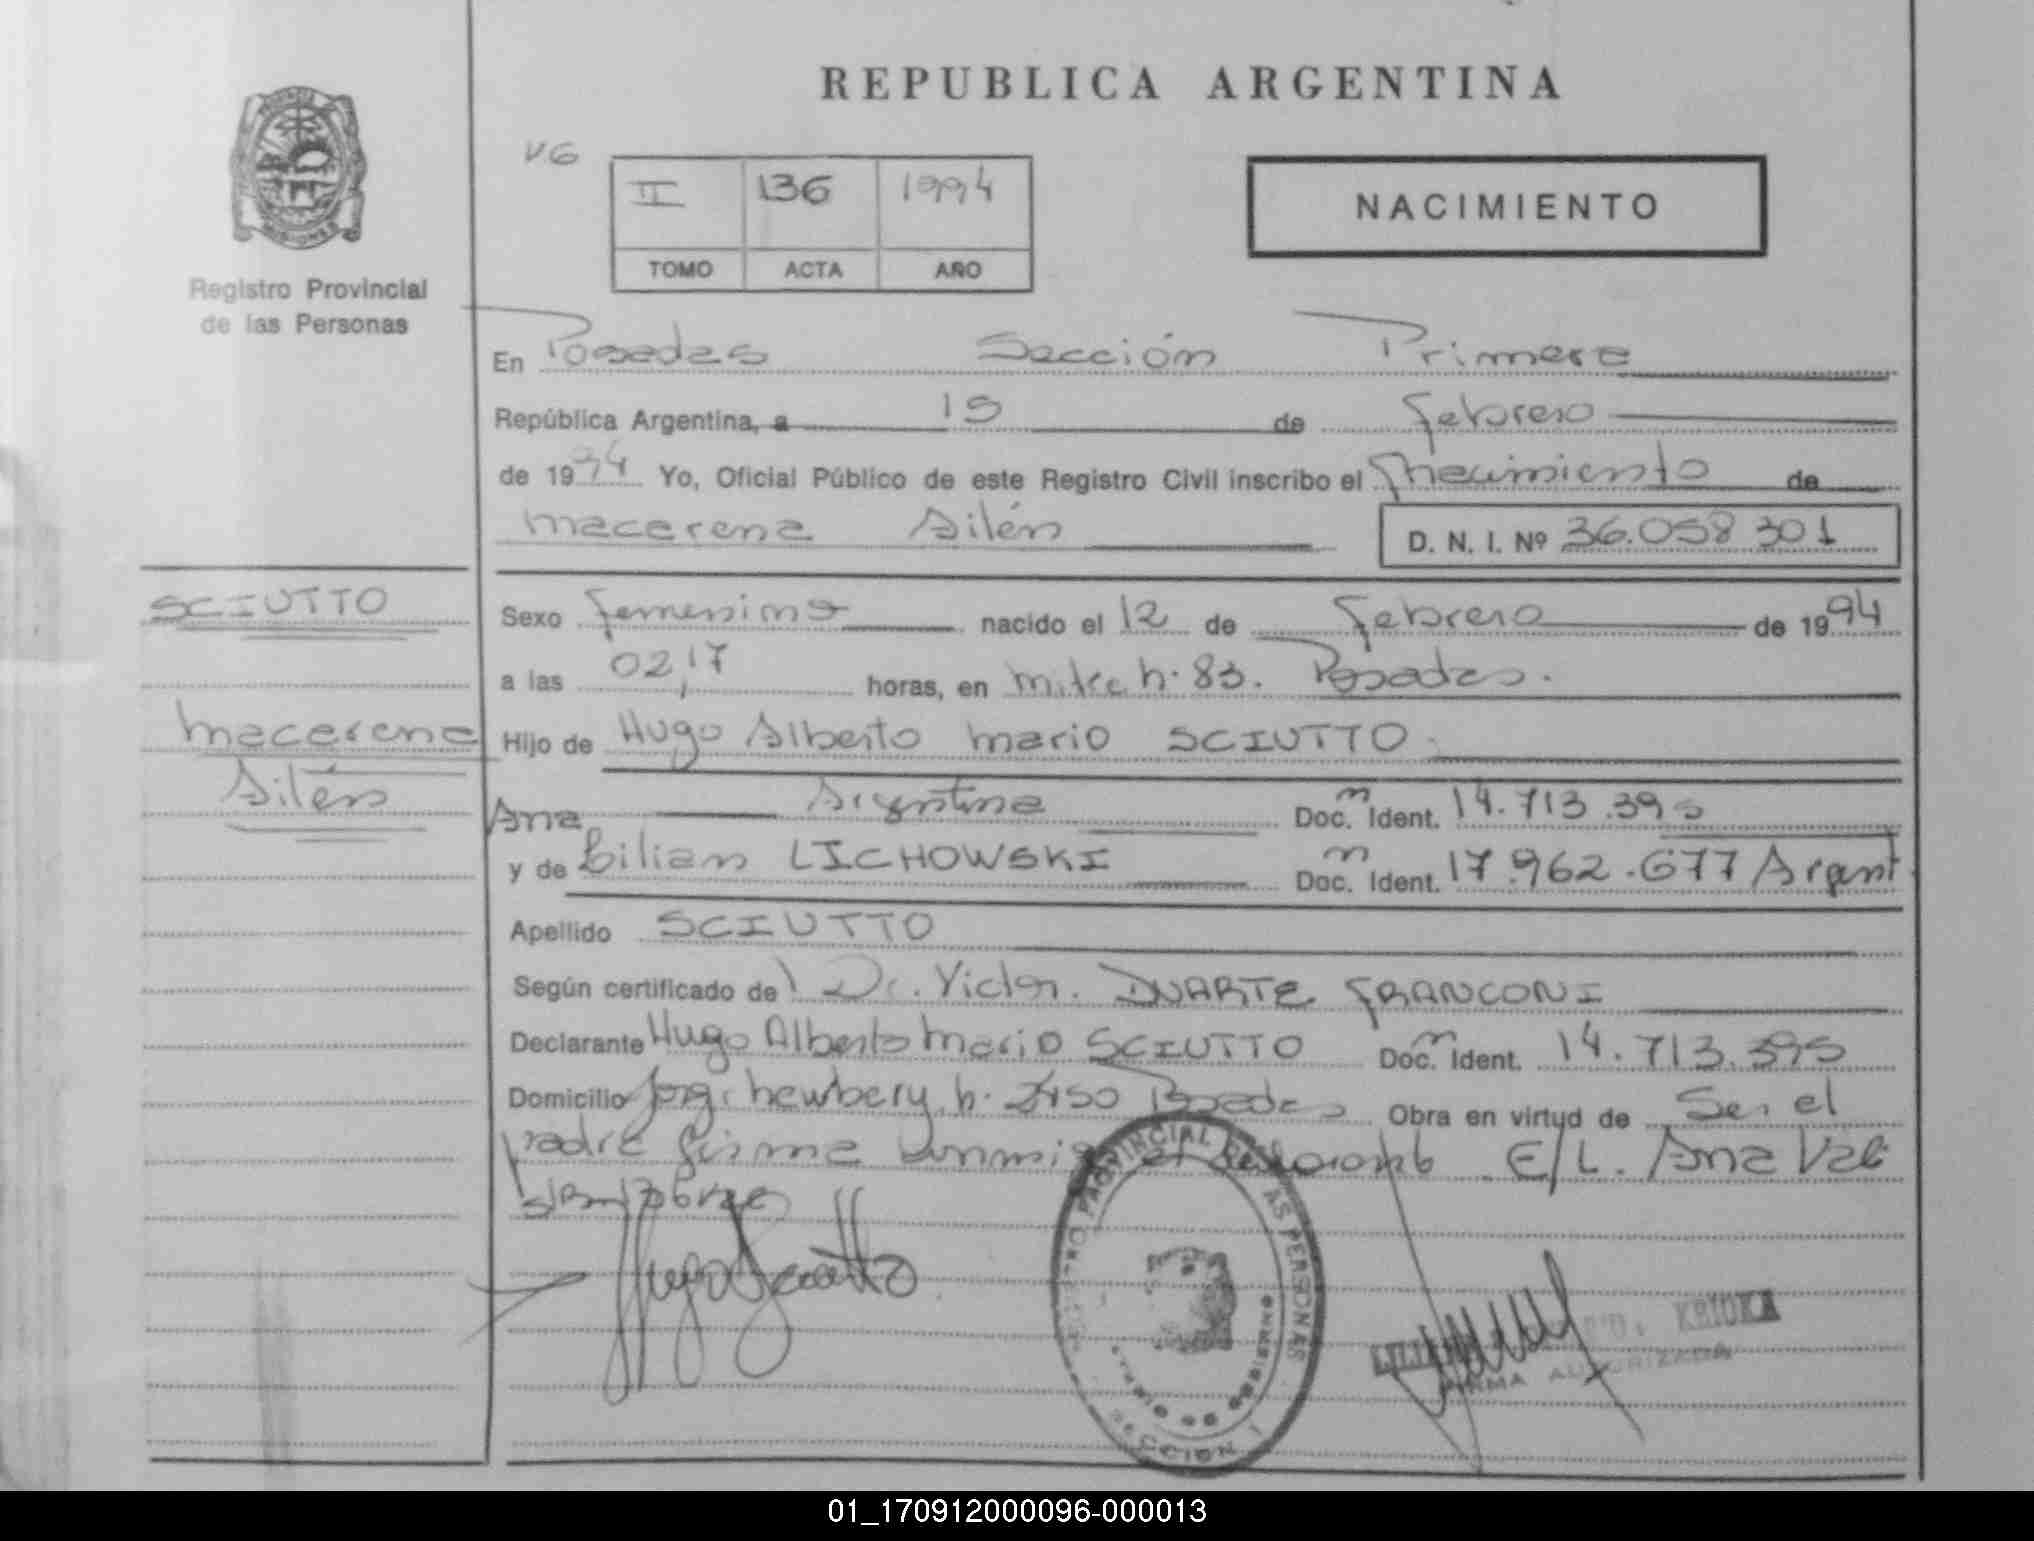 REPUBLICA ARGENTINA
PROVINCIA
MISIONES
Registro Provincial
de las Personas
VG
II 136 1994
TOMO ACTA AÑO
NACIMIENTO
En Posadas Sección Primera
República Argentina, a 15 de Febrero
de 1994 Yo, Oficial Público de este Registro Civil inscribo el Nacimiento de
Macarena Ailén D. N. I. Nº 36.058 301
SCIUTTO
Macarena
Ailén
Sexo Femenino nacido el 12 de Febrero de 1994
a las 02,17 horas, en Mitre n. 83. Posadas.
Hijo de Hugo Alberto Mario SCIUTTO
Argentina Doc. Ident. 14.713.395
Ana
y de Lilian LICHOWSKI Doc. Ident. 17.962.677 Argent
Apellido SCIUTTO
Según certificado del Dr. Victor DUARTE FRANCONI
Declarante Hugo Alberto Mario SCIUTTO Doc. Ident. 14.713.395
Domicilio Jorge Newbery n. 2450 Posadas Obra en virtud de Ser el
padre firma conmigo el E/L. Ana Vale
Hugo Sciutto
REGISTRO PROVINCIAL DE LAS PERSONAS
SECCION 1
KRIUKA
FIRMA AUTORIZADA
01_170912000096-000013